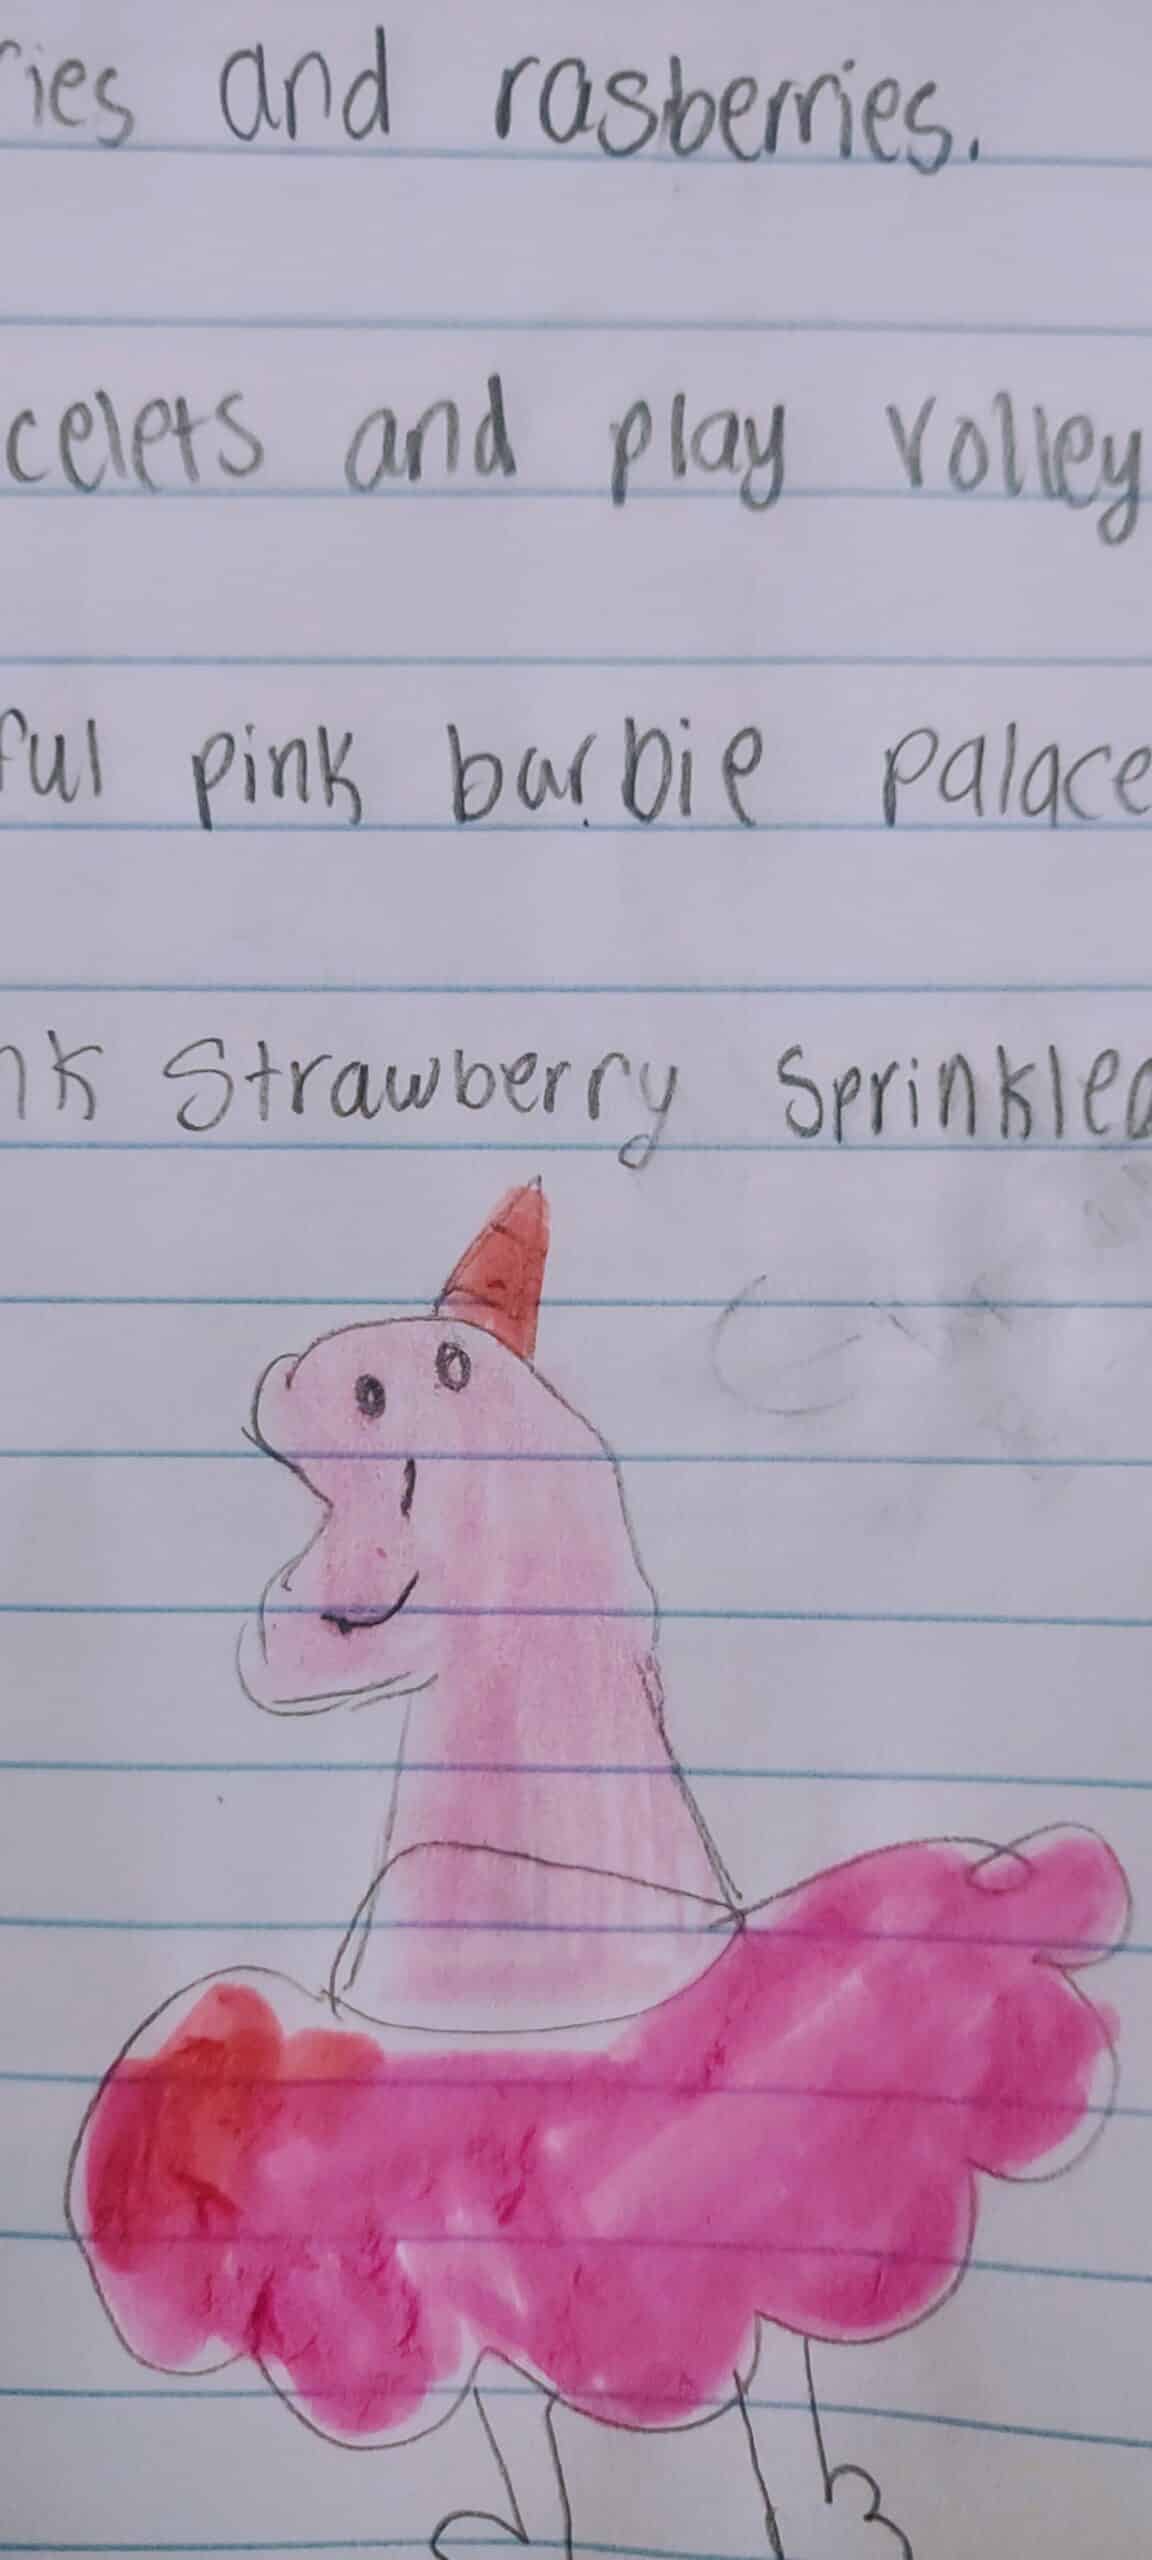 ries and rasberries.
celets and play volley
ful pink barbie palace
nk Strawberry Sprinkled